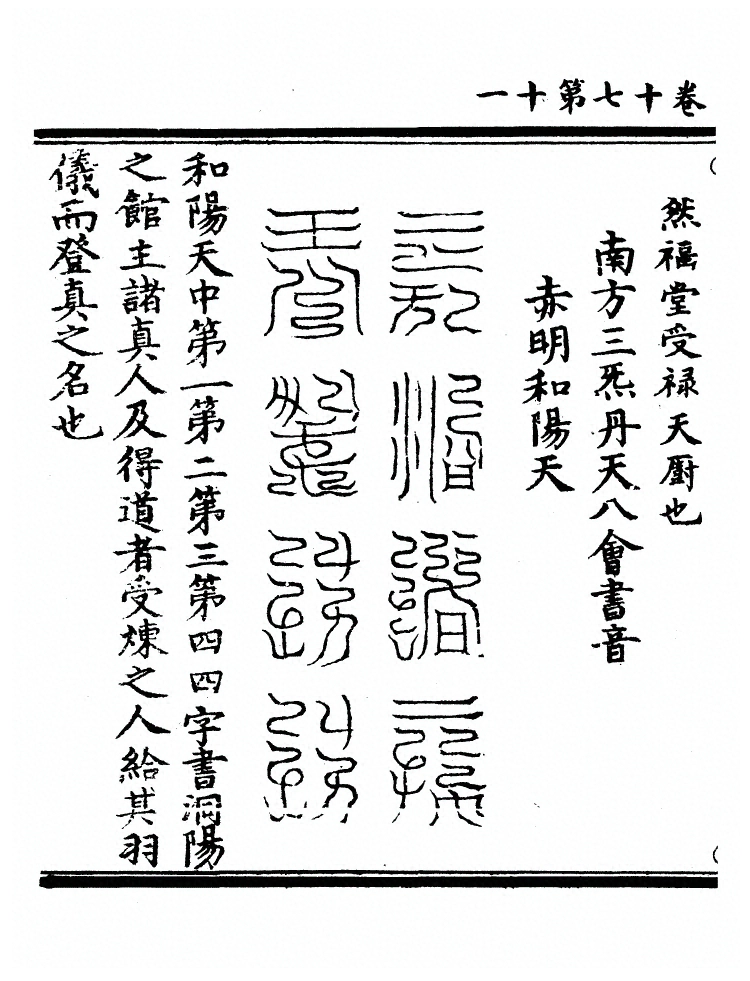 卷十七第十一
然福堂受禄天廚也
南方三炁丹天八會書音
赤明和陽天
和陽天中第一第二第三第四四字書洞陽
之館主諸真人及得道者受煉之人給其羽
儀而登真之名也